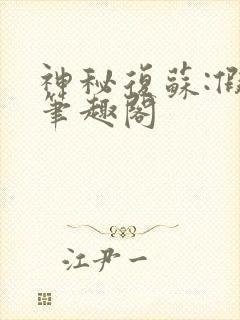 神秘復蘇:假
筆趣閣
江尹一